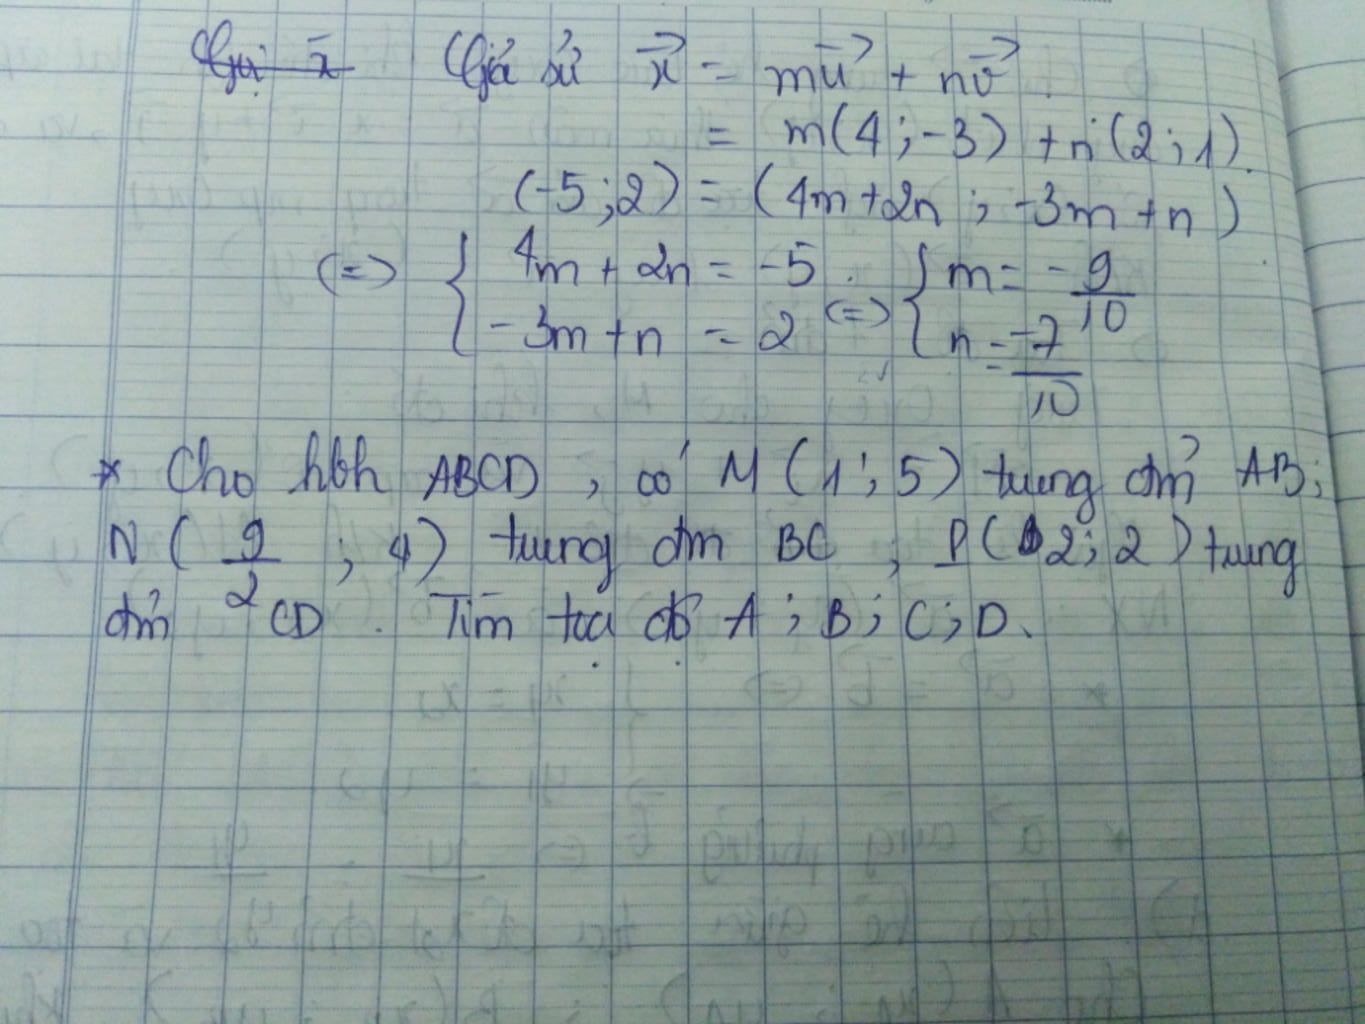 Giả sử x⃗ = mu⃗ + nv⃗
= m(4 ; -3) + n(2 ; 1).
(-5 ; 2) = (4m+2n ; -3m + n)
(=) { 4m + 2n = -5 (=) { m = -9/10
-3m + n = 2 n = -7/10
* Cho hbh ABCD , có M (1 ; 5) trung đm̉ AB ;
N ( 9/2 ; 4) trung đm BC ; P( 2 ; 2 ) trung
đm̉ CD . Tìm tọa độ A ; B ; C ; D.